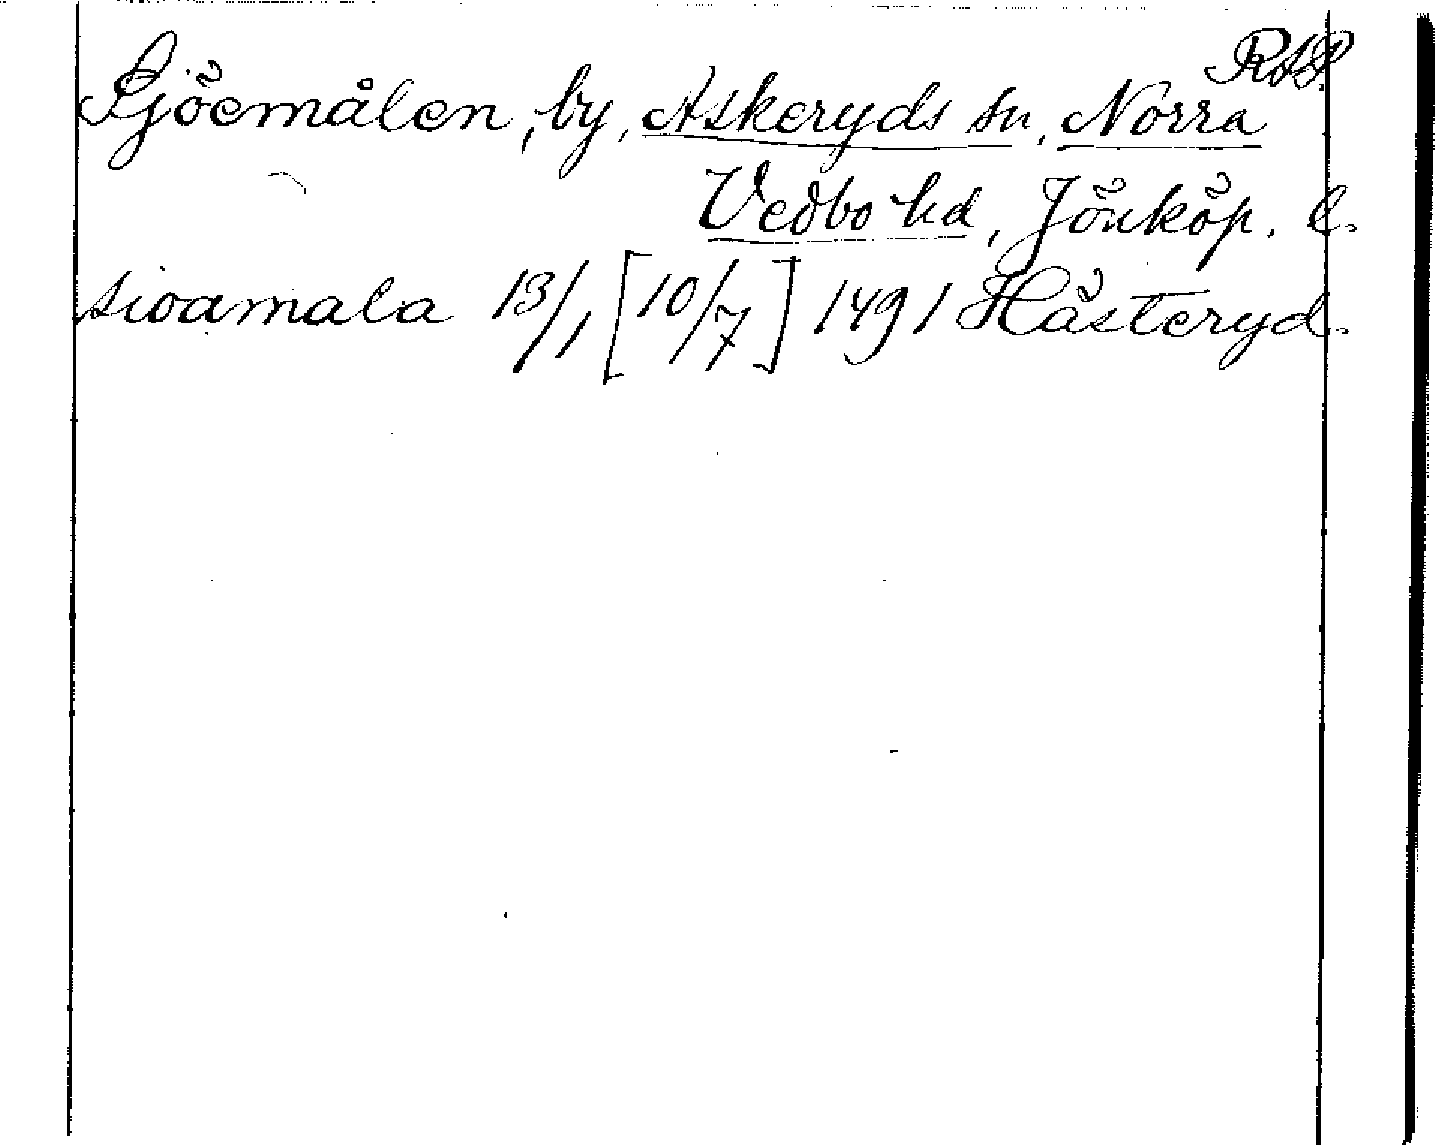 RAP.
Sjöemålen, by, Askeryds sn, Norra
Vedbo hd, Jönköp. l.
sioamala 13/1 [10/7] 1491 Hästeryd.